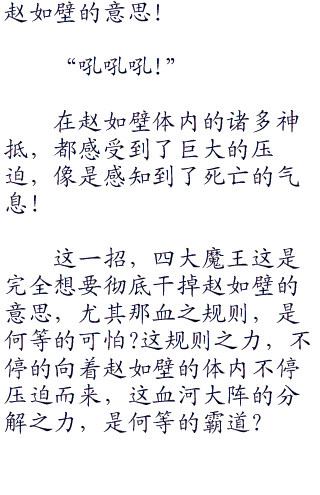 赵如壁的意思！
“吼吼吼！”
在赵如壁体内的诸多神
抵，都感受到了巨大的压
迫，像是感知到了死亡的气
息！
这一招，四大魔王这是
完全想要彻底干掉赵如壁的
意思，尤其那血之规则，是
何等的可怕？这规则之力，不
停的向着赵如壁的体内不停
压迫而来，这血河大阵的分
解之力，是何等的霸道？